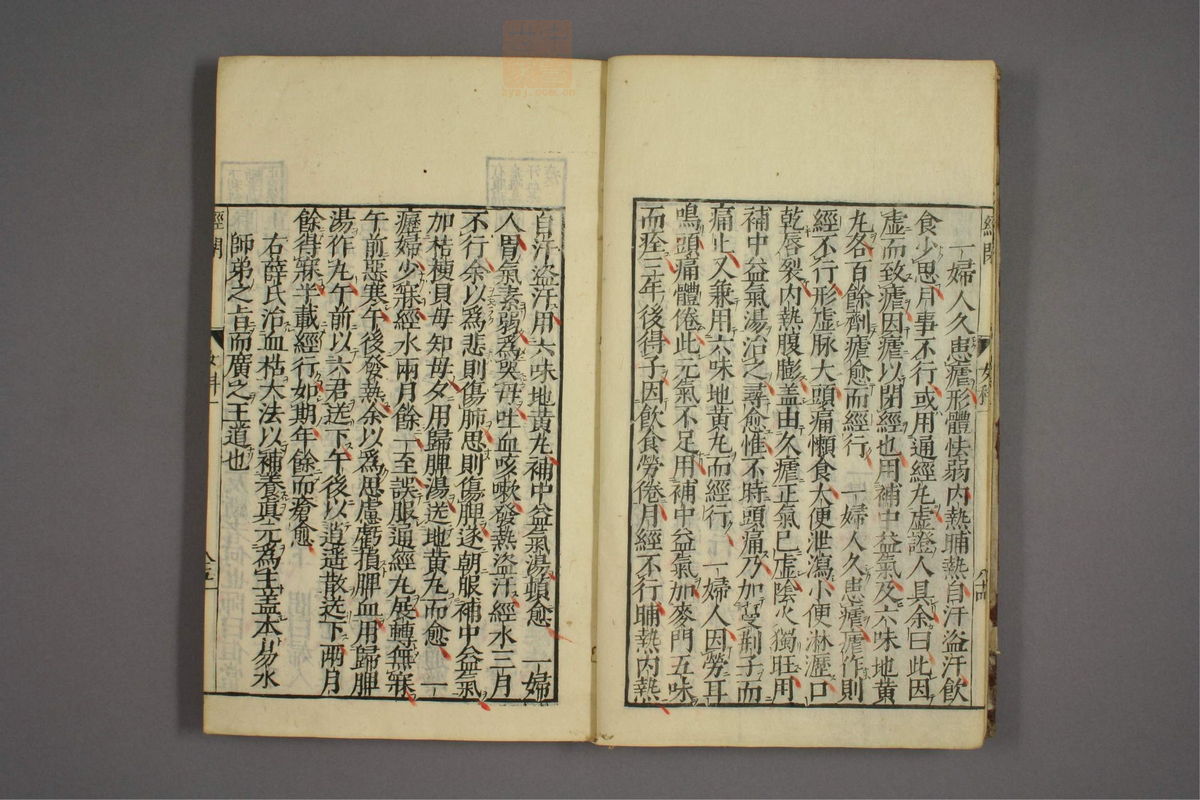 一婦人久患瘧形體怯弱內熱晡熱自汗盜汗飲
食少思月事不行或用通經丸虛證人具余曰此因
虛而致瘧因瘧以閉經也用補中益氣及六味地黃
丸各百餘劑瘧愈而經行　一婦人久患瘧瘧作則
經不行形虛脉大頭痛懶食大便泄瀉小便淋瀝口
乾唇裂內熱腹膨蓋由久瘧正氣已虛陰火獨旺用
補中益氣湯治之尋愈惟不時頭痛乃加蔓荊子而
痛止又兼用六味地黃丸而經行　一婦人因勞耳
鳴頭痛體倦此元氣不足用補中益氣加麥門五味
而痊三年後得子因飲食勞倦月經不行晡熱內熱
經閉
女科
八十四
自汗盜汗用六味地黃丸補中益氣湯頓愈　一婦
人胃氣素弱爲哭母吐血咳嗽發熱盜汗經水三月
不行余以爲悲則傷肺思則傷脾遂朝服補中益氣
加桔梗貝母知母夕用歸脾湯送地黃丸而愈　一
癦婦少寐經水兩月餘一至誤服通經丸展轉無寐
午前惡寒午後發熱余以爲思慮虧損脾血用歸脾
湯作丸午前以六君送下午後以逍遙散送下兩月
餘得寐半載經行如期年餘而瘡愈
右薛氏治血枯大法以補養眞元爲主蓋本易水
師弟之旨而廣之王道也
經閉
女科
八十五